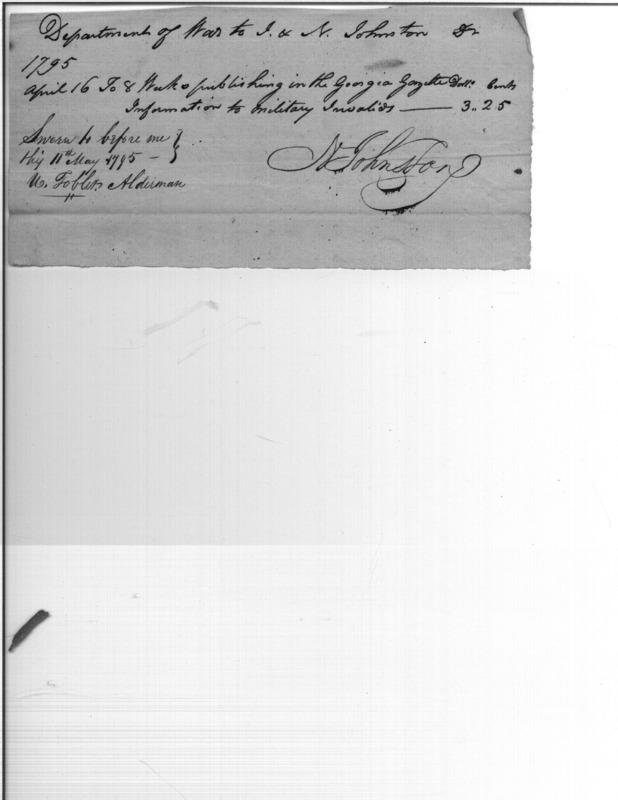 Department of War to J. & N. Johnston Dr
1795
April 16 To 8 Weeks publishing in the Georgia Gazette Dolls. Cents
Information to military Invalids — 3..25
Sworn to before me }
this 11th May 1795 – }
Alderman
N Johnston